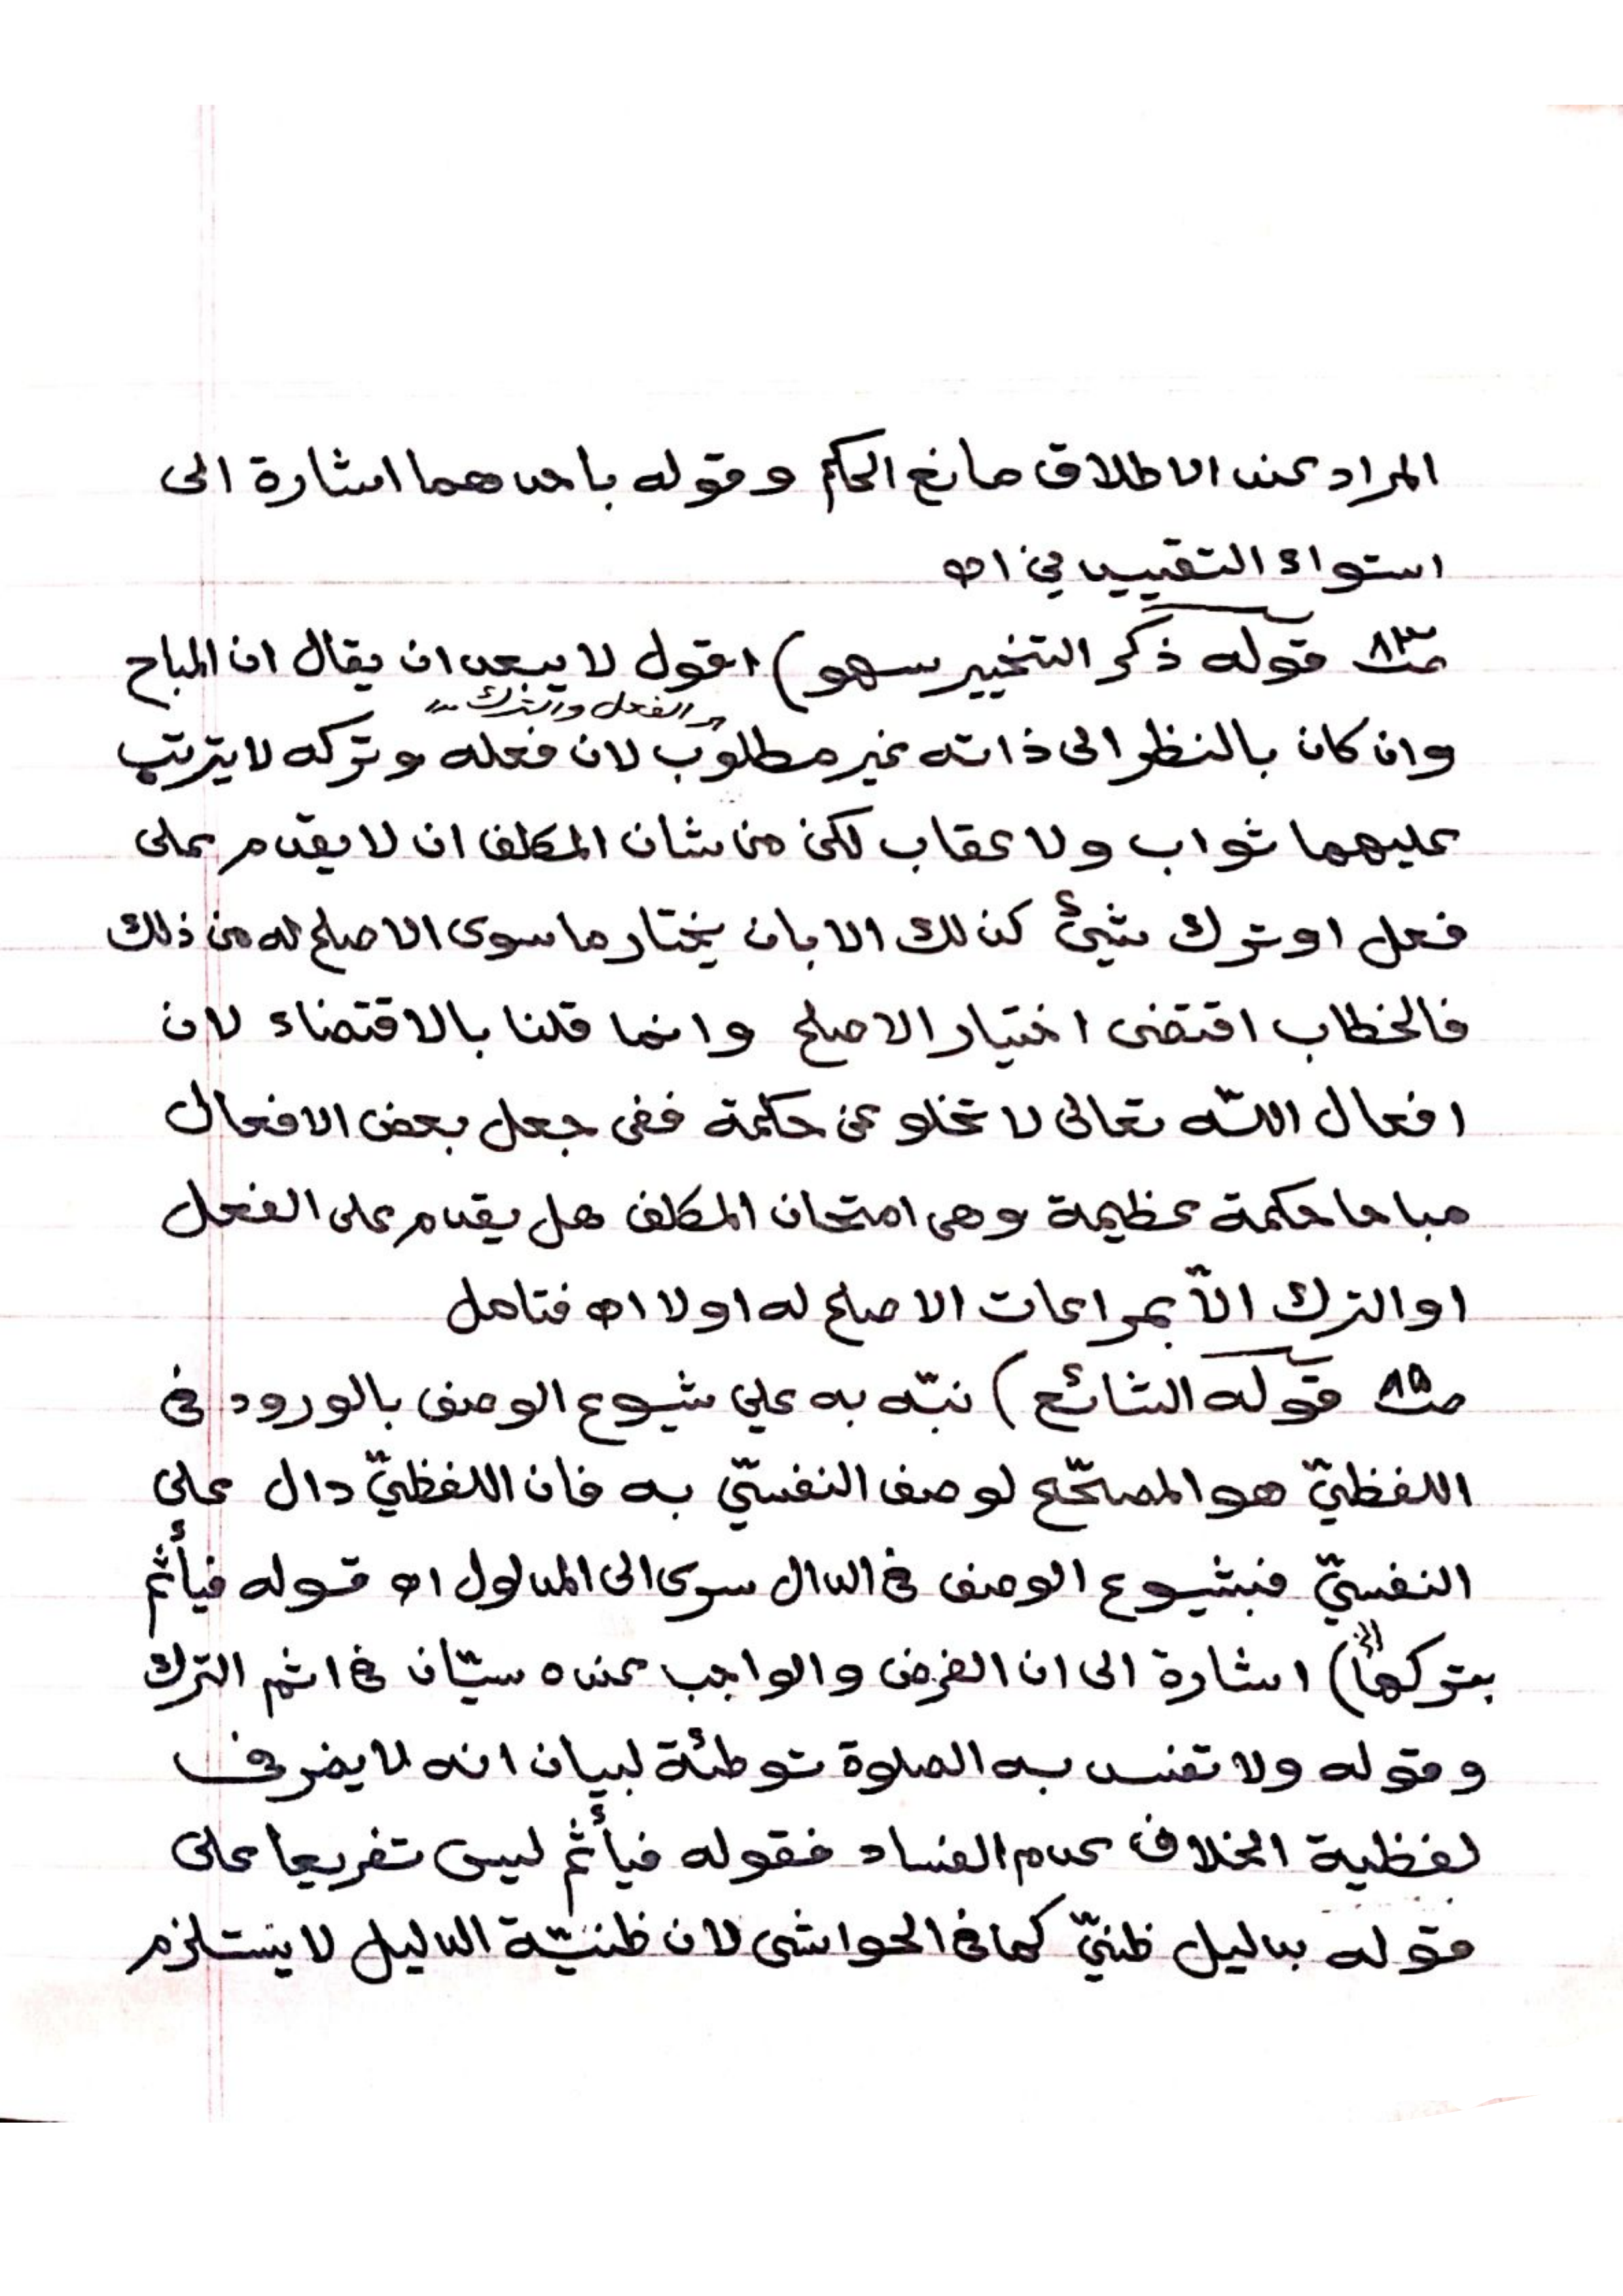 المراد عند الاطلاق مانع الحكم وقوله باحدهما اشارة الى
استواء التقييدين اه
صـ٨٣ قوله ذكر التخيير سهو) اقول لا يبعد ان يقال ان المباح
الفعل والترك
وان كان بالنظر الى ذاته غير مطلوب لان فعله وتركه لا يترتب
عليهما ثواب ولا عقاب لكن من شان المكلف ان لا يقدم على
فعل او ترك شيئ كذلك الا بان يختار ما سوى الاصلح له من ذلك
فالخطاب اقتضى اختيار الاصلح وانما قلنا بالاقتضاء لان
افعال الله تعالى لا تخلو عن حكمة ففى جعل بعض الافعال
مباحا حكمة عظيمة وهى امتحان المكلف هل يقدم على الفعل
او الترك الّا بمراعات الاصلح له او لا اه فتامل
صـ٨٥ قوله الشائع) نبّه به على شيوع الوصف بالورود فى
اللفظيّ هو المصحّح لوصف النفسيّ به فان اللفظيّ دال على
النفسيّ فبشيوع الوصف فى الدال سرى الى المدلول اه قوله فيأثم
بتركها) اشارة الى ان الفرض والواجب عنده سيّان فى اثم الترك
وقوله ولا تفسد به الصلوة توطئة لبيان انه لا يضر فى
لفظية الخلاف عدم الفساد فقوله فيأثم ليس تفريعا على
قوله بدليل ظنيّ كما فى الحواشى لان ظنيّة الدليل لا يستلزم